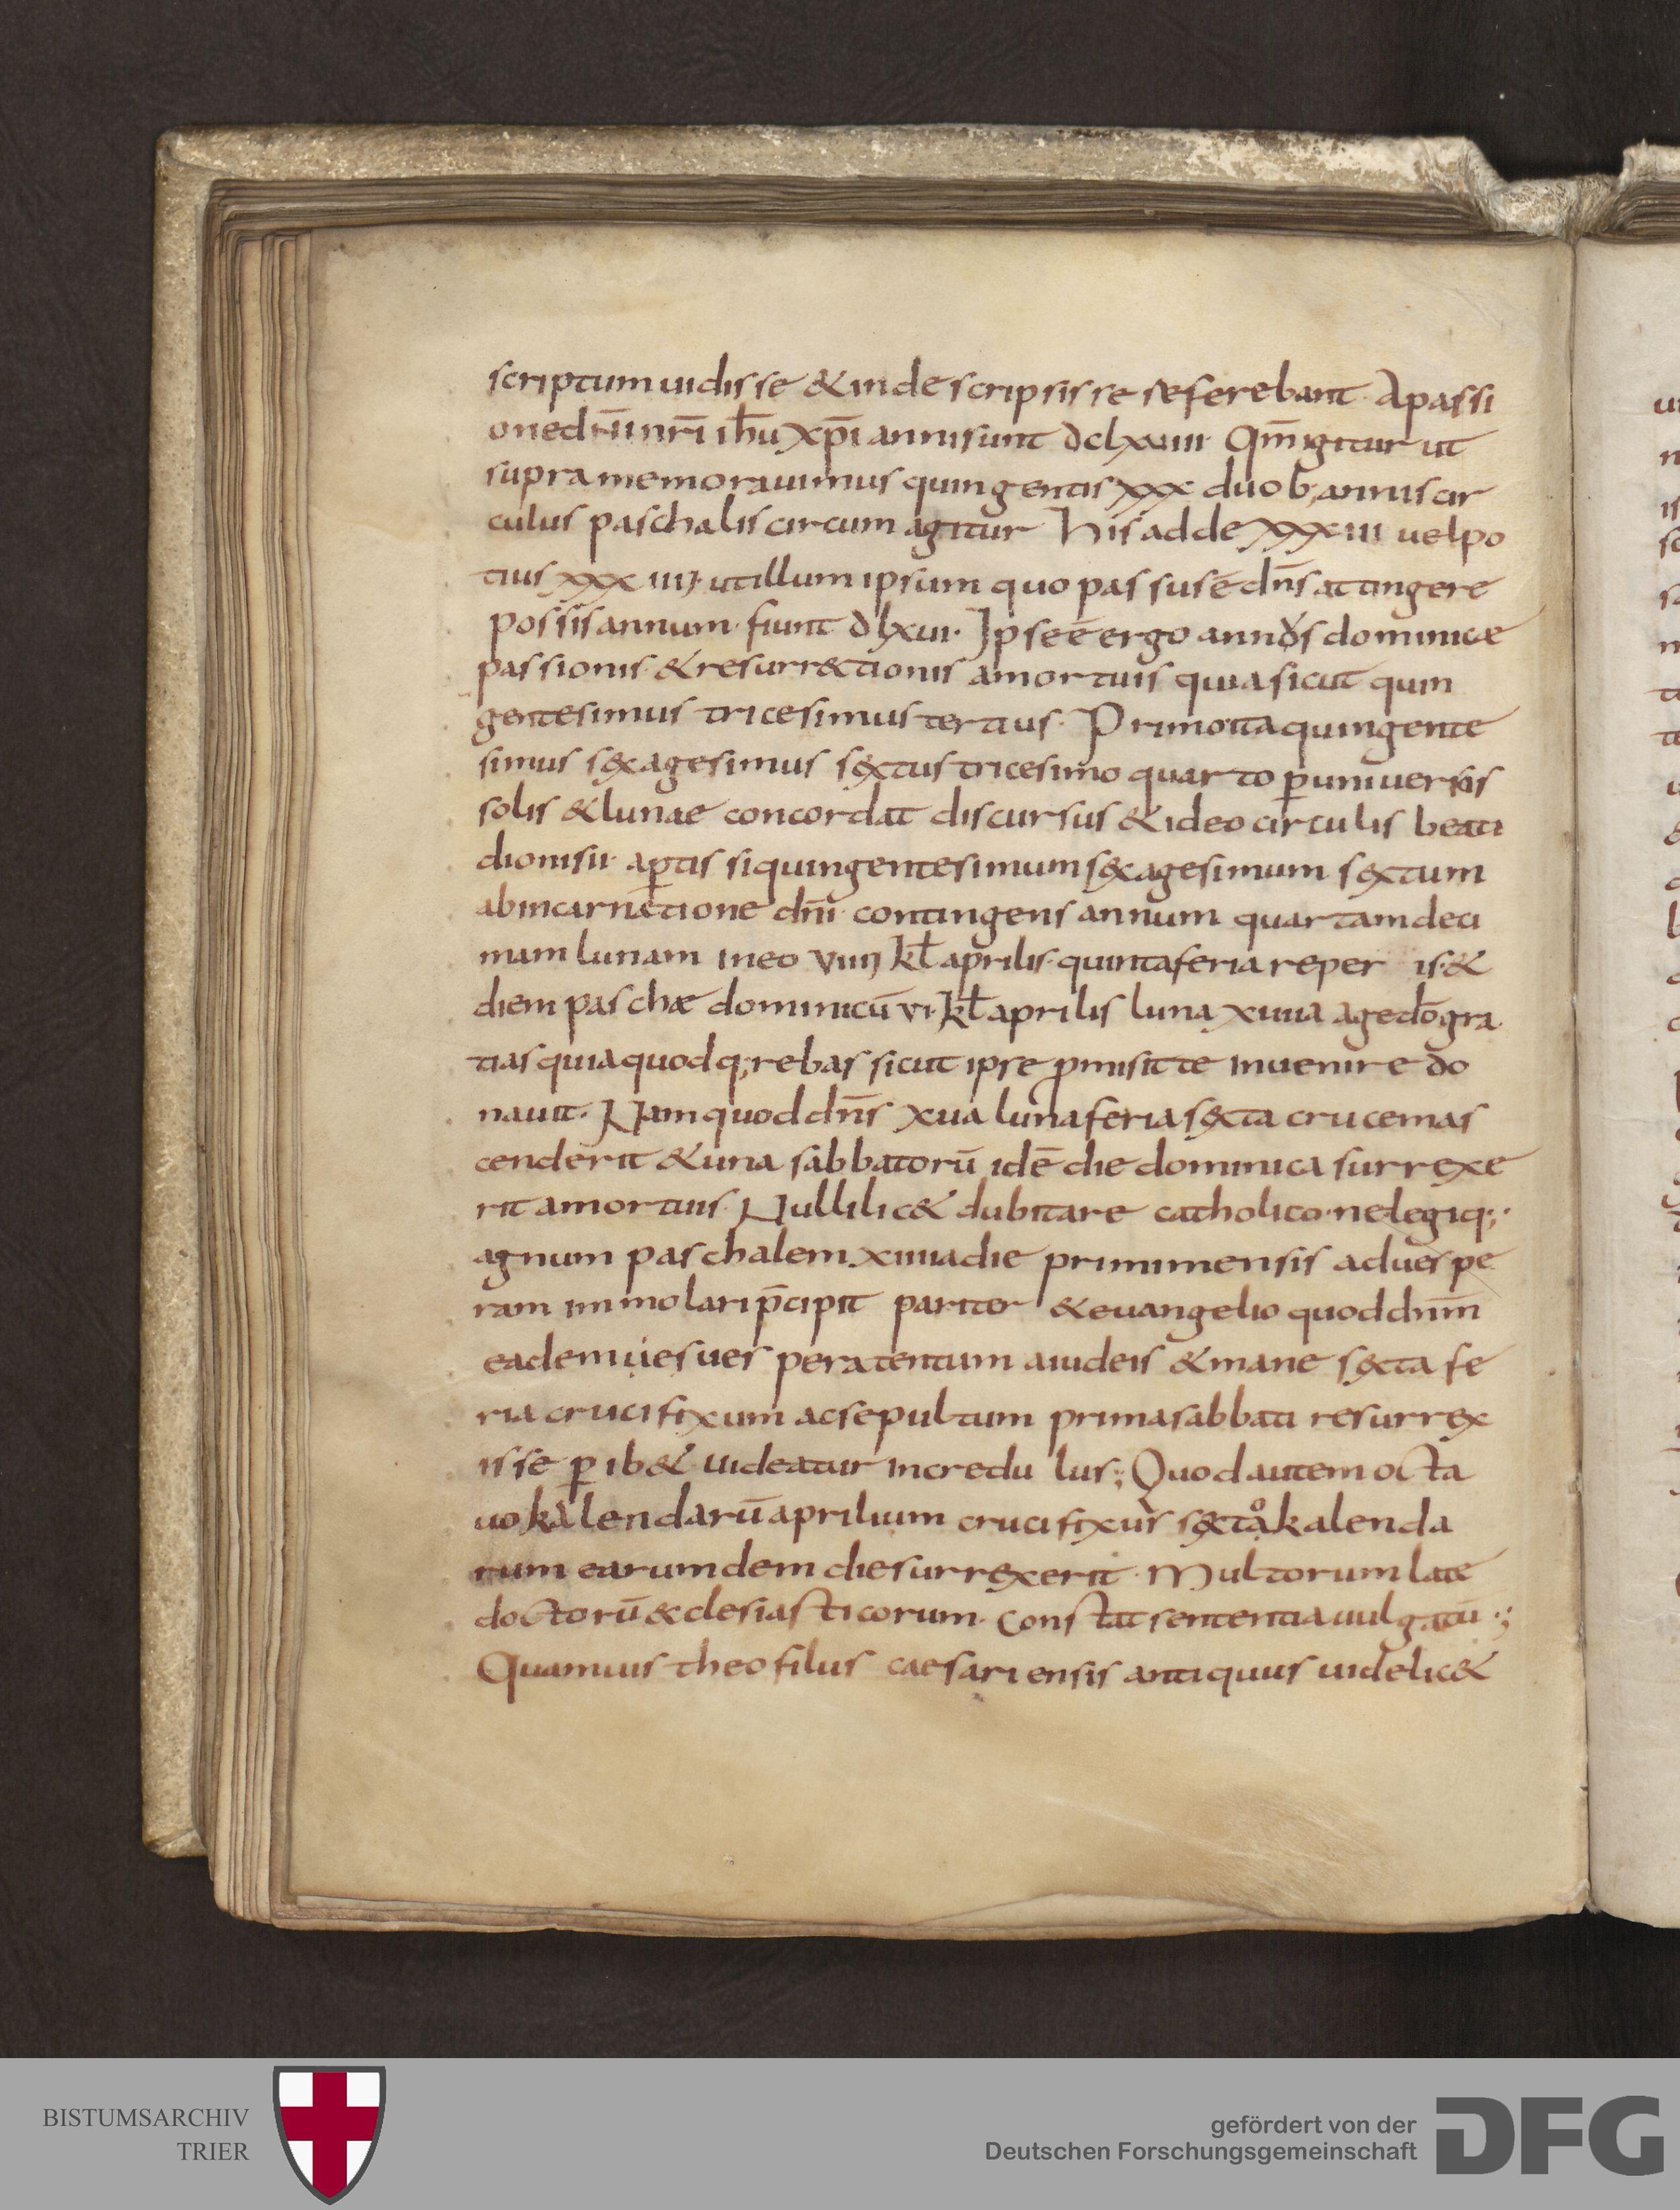 scriptum uidisse & inde scripsisse referebant. A passi
one dnī nrī ihū xpī anni sunt dclxuiiii. Qm̄ igitur ut
supra memorauimus quingentis xxx duob; annis cir
culus paschalis circum agitur his adde xxxiii uel po
tius xxxiiij. ut illum ipsum quo passus ē dn̄s attingere
possis annum. fiunt dlxui. Ipse ē ergo annus dominicæ
passionis. & resurr&tionis a mortuis quia sicut quin
gentesimus tricesimus tertius. Primo ita quingente
simus sexagesimus sextus tricesimo quarto p̱ uniuersos
solis & lunae concordat discursus & ideo circulis beati
dionisii. ap̱tis si quingentesimum sexagesimum sextum
ab incarnatione dn̄i. contingens annum quartam deci
mam lunam in eo uiiij kl̄ aprilis. quinta feria reper is. &
diem paschæ dominicū ui. kl̄ aprilis luna xuiia age dō gra
tias quia quod q;rebas sicut ipse ꝓmisit te inuenire do
nauit. Nam quod dn̄s xua luna feria sexta crucem as
cenderit & una sabbatorū idē die dominica surrexe
rit a mortuis. Nulli lic& dubitare catholico. ne legi q;.
agnum paschalem xiiiia die primi mensis ad uespe
ram immolari p̄cipit pariter & euangelio quod dnm̄
eadem uesuespera tentum a iudeis & mane sexta fe
ria crucifixum ac sepultum prima sabbati resurrex
isse p̱ ib& uideatur incredulus; Quod autem octa
uo kalendarū aprilium crucifixus sexto kalenda
rum earumdem die surrexerit. Multorum late
doctorū &clesiasticorum. Constat sententia uulgatū.;
Quamuis theofilus caesariensis antiquus uidelic&
BISTUMSARCHIV
TRIER
gefördert von der
Deutschen Forschungsgemeinschaft
DFG